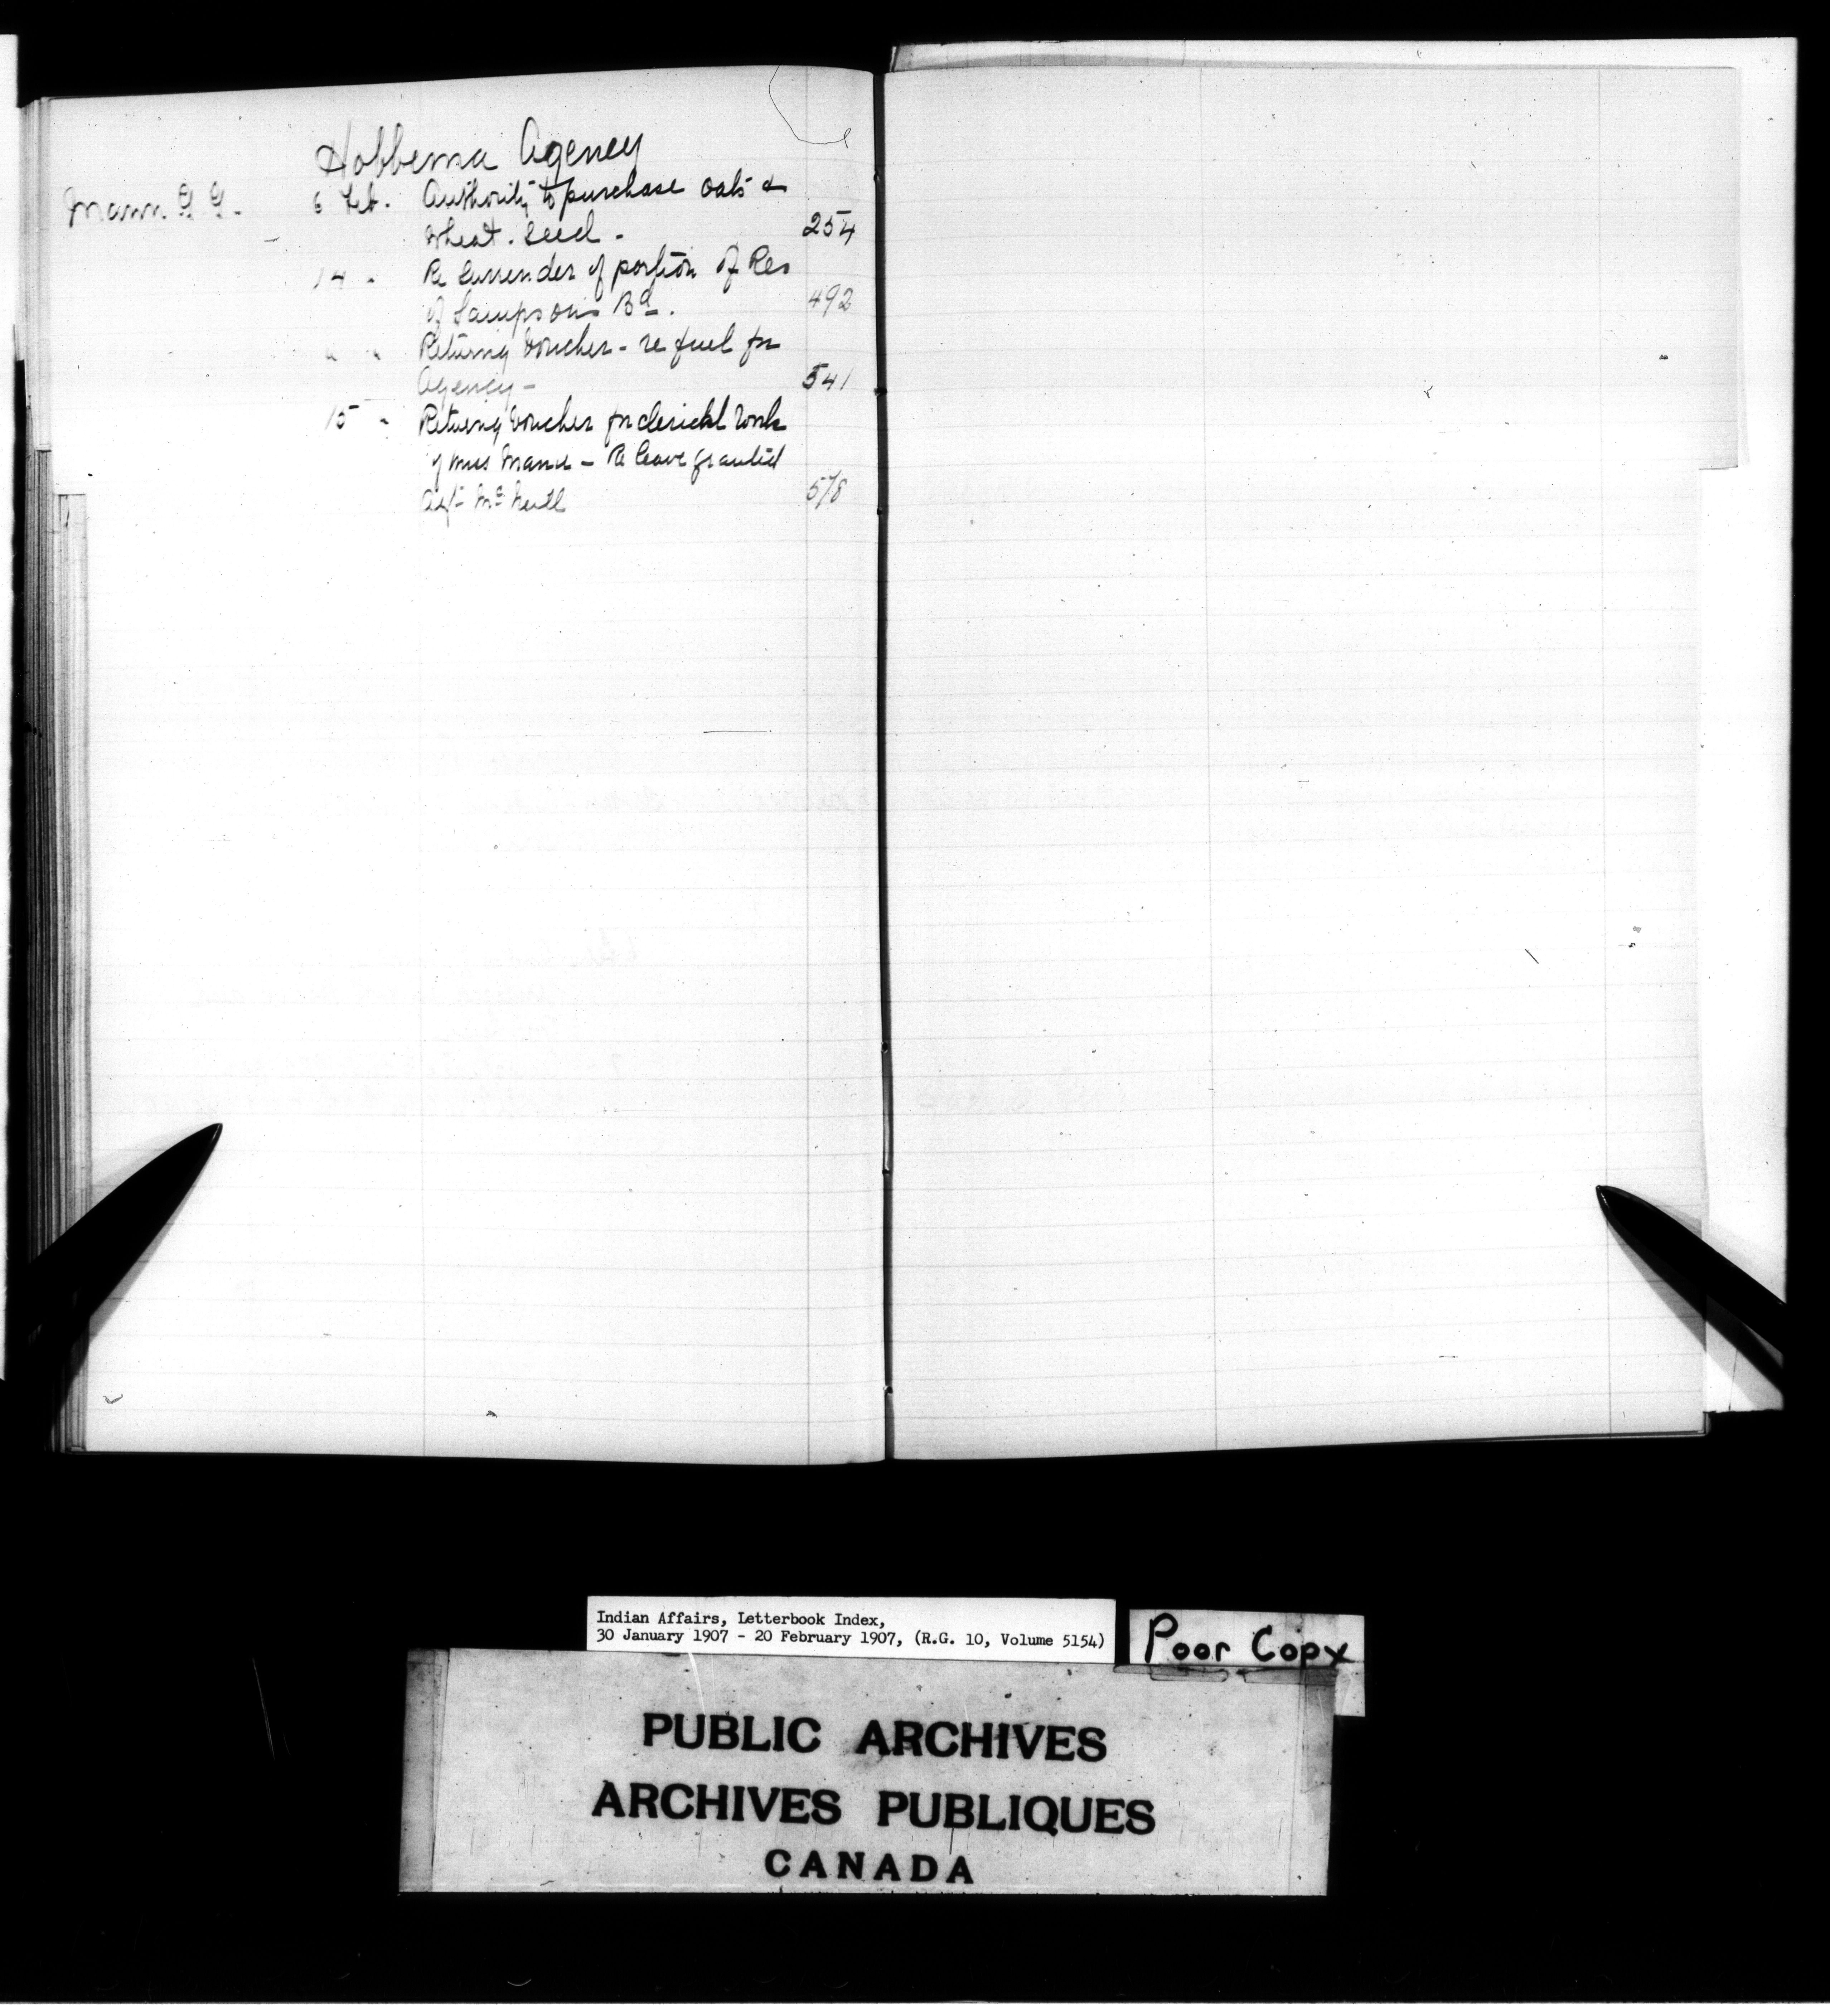 Hobbema Agency
Mann G G. 6 Feb. Authority to purchase oats &
wheat. seed - 254
14 " Re Surrender of portion of Res
of Sampsons Bd. 492
" " Returng Voucher - re fuel for
Agency - 541
15 " Returng Voucher for clerical work
of Miss Mann - Re leave granted
Agt Mc Neill 578
Indian Affairs, Letterbook Index,
30 January 1907 - 20 February 1907, (R.G. 10, Volume 5154)
Poor Copy
PUBLIC ARCHIVES
ARCHIVES PUBLIQUES
CANADA